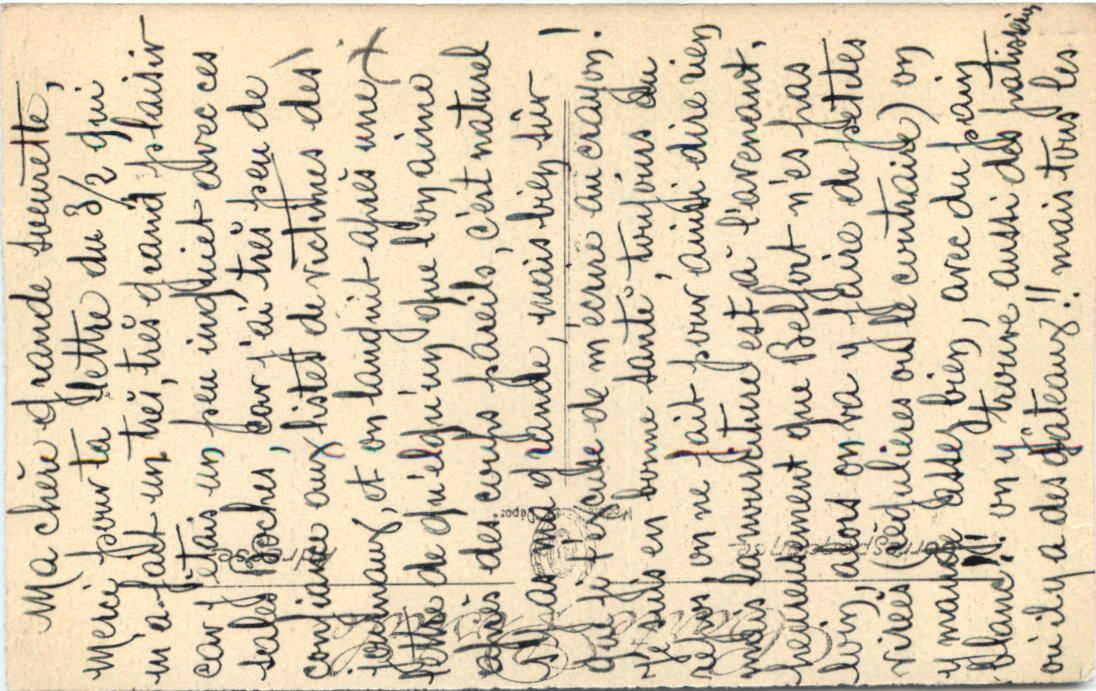 Ma chère grande soeurette,
Merci pour ta lettre du 3/2 qui
m'a fait un très, très grand plaisir
car j'étais un peu inquiet avec ces
sales Boches, car j'ai très peu de
confiance aux listes de victimes des
journaux, et on languit après une
lettre de quelqu'un que l'on aime
après des coups pareils, c'est naturel
n'est-ce pas ma grande, mais bien sûr !
oui je t'excuse de m'écrire au crayon.
Je suis en bonne santé, toujours du
repos on ne fait pour ainsi dire rien
mais la nourriture est à l'avenant,
heureusement que Belfort n'es pas
loin, alors on va y faire de petites
virées (régulières ou le contraire) on
y mange assez bien, avec du pain
blanc. on y trouve aussi des patissiers
où il y a des gâteaux !! mais tous les
Carte Postale
Correspondance
Adresse